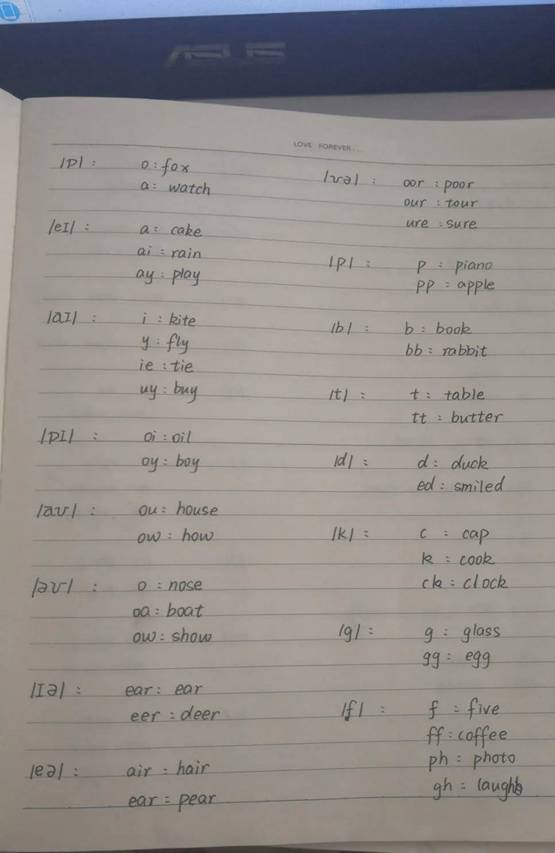 ASUS
LOVE FOREVER...
/ɒ/ : o : fox
a : watch
/eɪ/ : a : cake
ai : rain
ay : play
/aɪ/ : i : kite
y : fly
ie : tie
uy : buy
/ɒɪ/ : oi : oil
oy : boy
/aʊ/ : ou : house
ow : how
/əʊ/ : o : nose
oa : boat
ow : show
/ɪə/ : ear : ear
eer : deer
/eə/ : air : hair
ear : pear
/ʊə/ : oor : poor
our : tour
ure : sure
/p/ : p : piano
pp : apple
/b/ : b : book
bb : rabbit
/t/ : t : table
tt : butter
/d/ : d : duck
ed : smiled
/k/ : c : cap
k : cook
ck : clock
/g/ : g : glass
gg : egg
/f/ : f : five
ff : coffee
ph : photo
gh : laugh